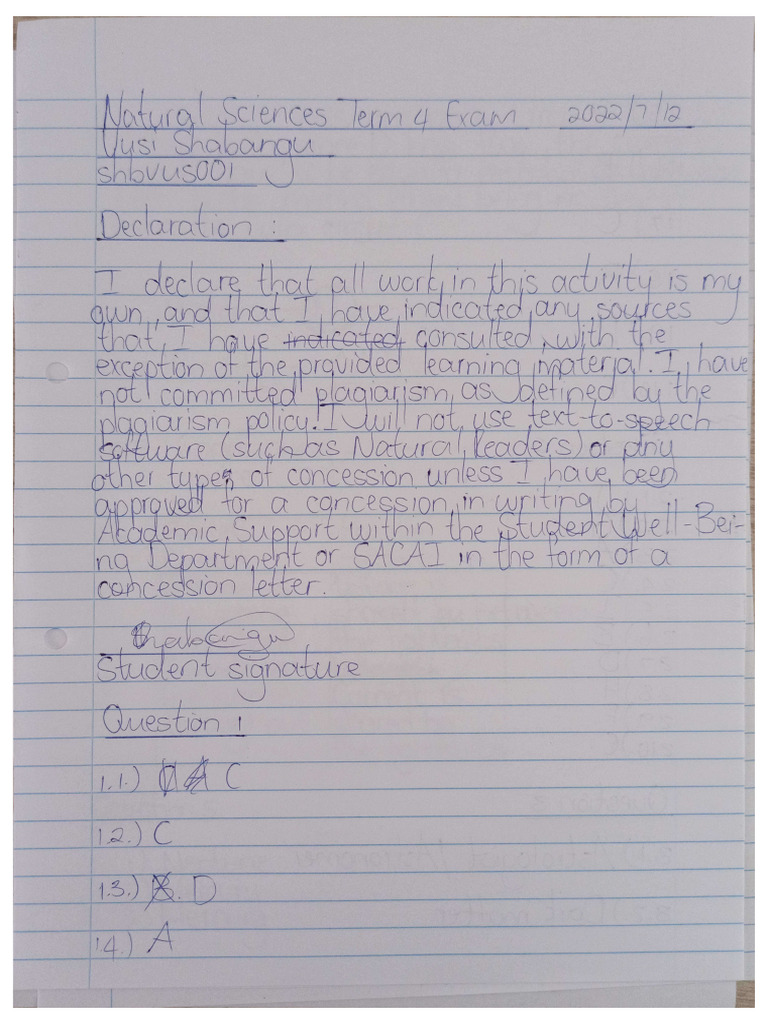 Natural Sciences Term 4 Exam 2022/7/12
Vusi Shabangu
shbvus001
Declaration :
I declare that all work in this activity is my
own, and that I have indicated any sources
that I have indicated consulted, with the
exception of the provided learning material. I have
not committed plagiarism as defined by the
plagiarism policy. I will not use text-to-speech
software (such as Natural Readers) or any
other types of concession unless I have been
approved for a concession in writing by
Academic Support within the Student Well-Bei-
ng Department or SACAI in the form of a
concession letter.
Shabangu
Student signature
Question 1
1.1.) C
1.2.) C
1.3.) D
1.4.) A